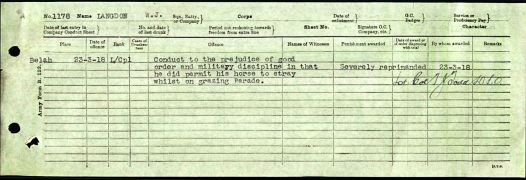 No. 1178 Name LANGDON W.J. Sqn, Batty, or Company Corps Date of enlistment G.C. Badges Service or Proficiency Pay
Date of last entry in Company Conduct Sheet No. and date of last drunk Period not reckoning towards freedom from extra fine Sheet No. Signature O.C. Company, etc. Character
Place Date of offence Rank Cases of Drunkenness Offence Names of Witnesses Punishment awarded Date of award or of order dispensing with trial By whom awarded Remarks
Belah 23-3-18 L/Cpl Conduct to the prejudice of good
order and military discipline in that Severely reprimanded 23-3-18
he did permit his horse to stray
whilst on grazing Parade.
Army Form B. 120.